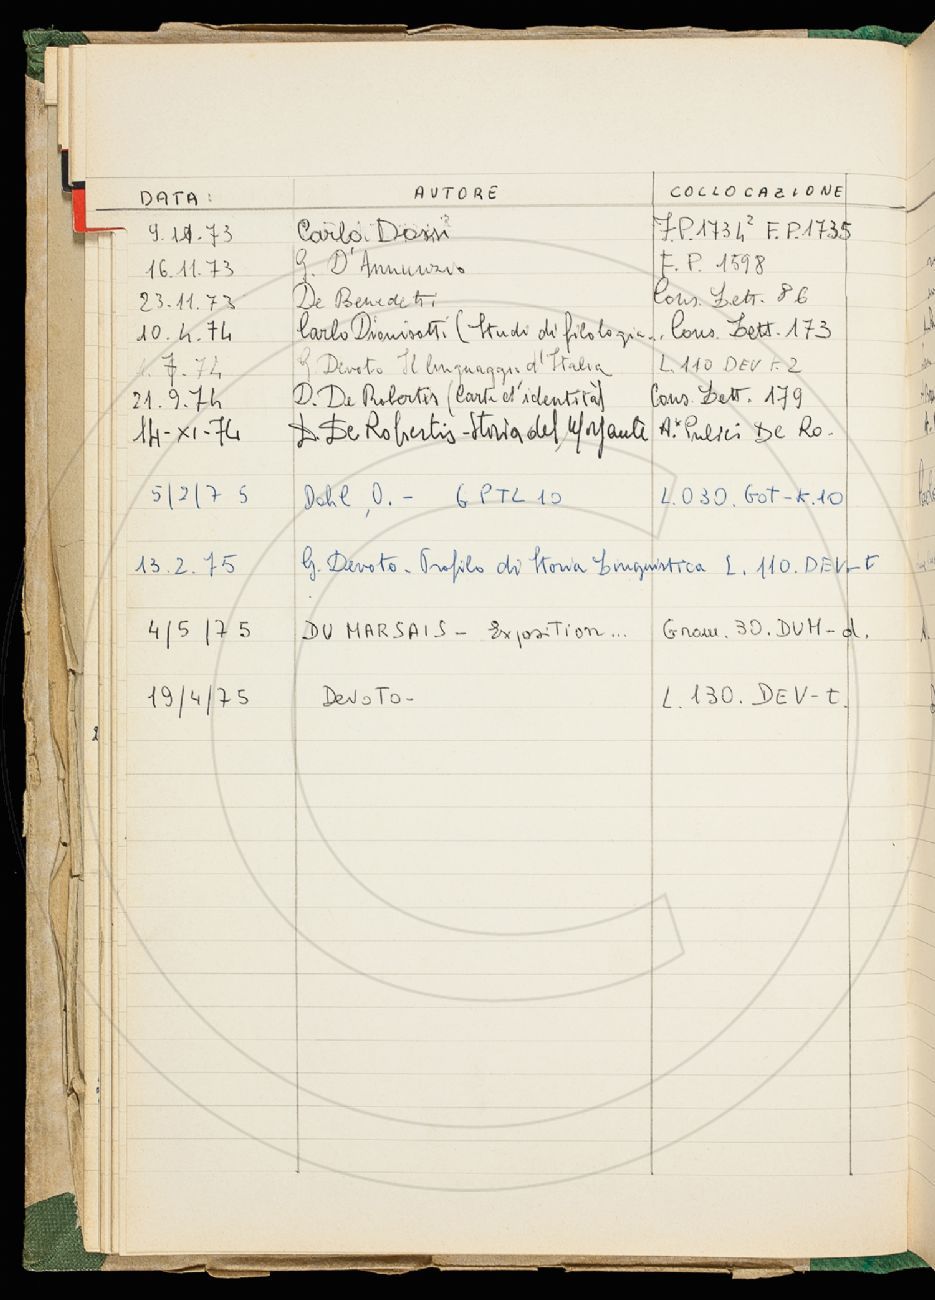 DATA: AUTORE COLLOCAZIONE
9.11.73 Carlo Dossi² F.P.1734² F.P.1735
16.11.73 G. D'Annunzio F. P. 1598
23.11.73 De Benedetti Cons. Lett. 86
10.4.74 Carlo Dionisotti (Studi di filologia.. Cons. Lett. 173
7.74 G Devoto Il linguaggio d'Italia L.110 DEV t.2
21.9.74 D. De Robertis (Carte d'identità) Cons. Lett. 179
14-XI-74 D. De Robertis - Storia del Morgante A.* Pulci De Ro.
5/2/75 Dahl, O. - GPTL 10 L.030.Got-k.10
13.2.75 G. Devoto. Profilo di Storia Linguistica L. 110. DEV-t
4/5/75 DU MARSAIS - Exposition... Gram. 30. DUM-d.
19/4/75 Devoto- L. 130. DEV-t.